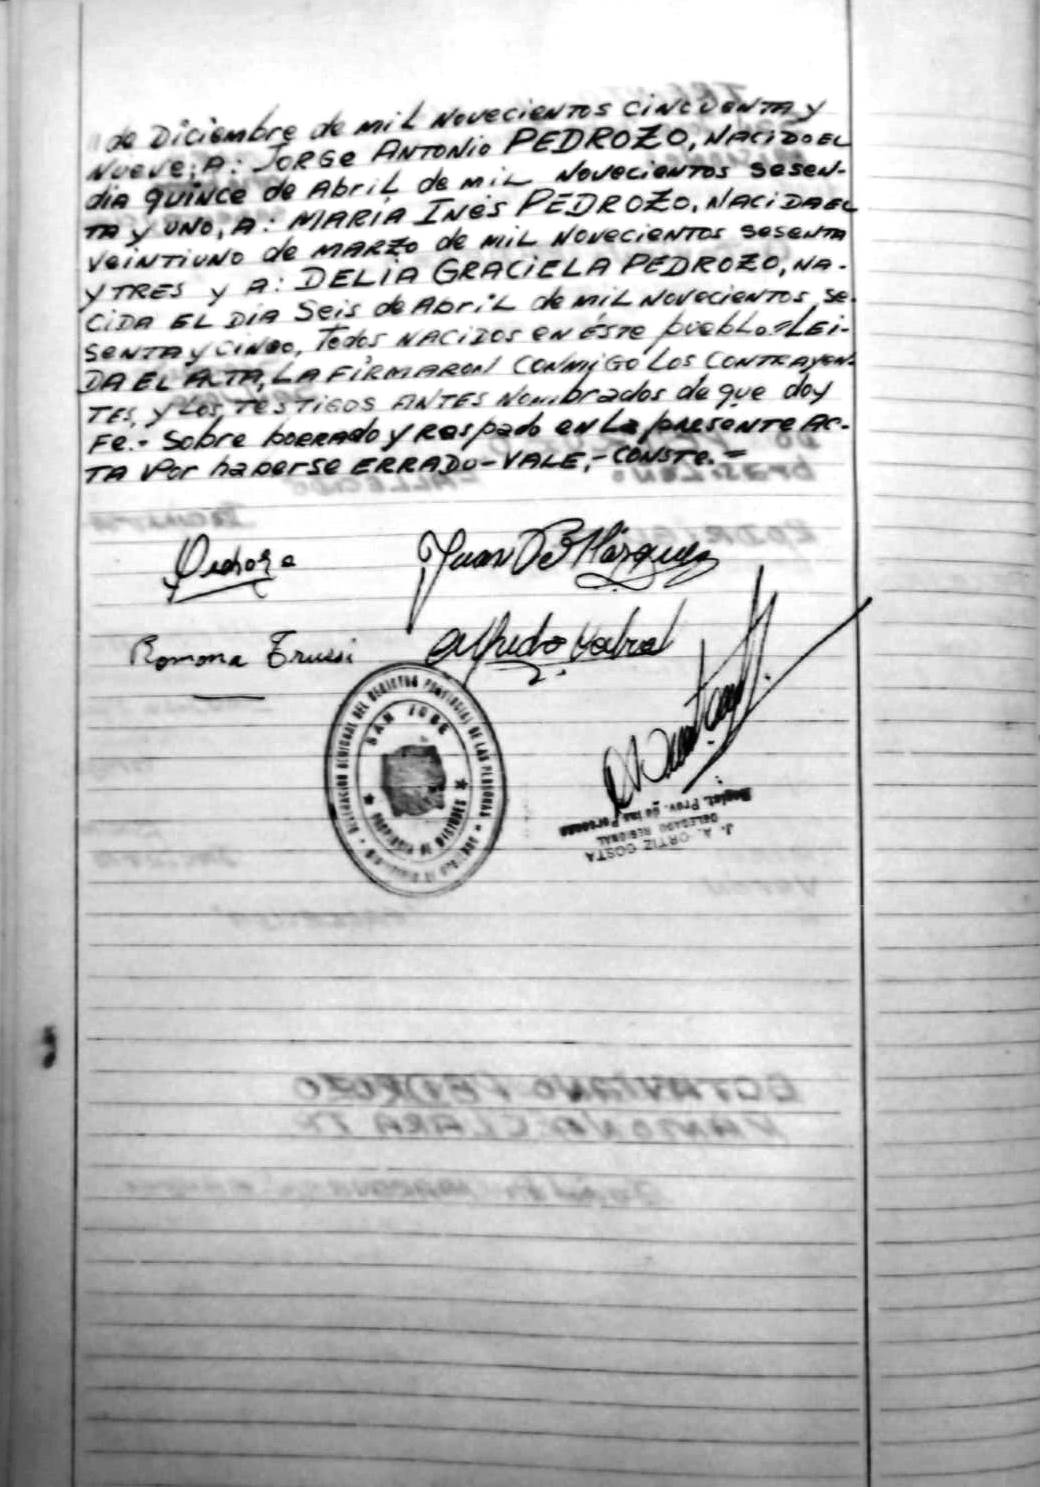 de Diciembre de mil Novecientos CINCUENTA y
NUEVE; A: JORGE ANTONIO PEDROZO, NACIDO EL
DIA QUINCE de Abril de mil Novecientos sesen-
TA y UNO, A: MARIA INÉS PEDROZO, NACIDA EL
VEINTIUNO de MARZO de mil Novecientos sesenta
Y TRES y A: DELIA GRACIELA PEDROZO, NA-
CIDA EL DIA Seis de Abril de mil Novecientos se-
SENTA y CINCO, Todos NACIDOS en éste pueblo.=LEI-
DA EL ACTA, LA FIRMARON CONMIGO LOS CONTRAYEN-
TES, y LOS TESTIGOS ANTES Nombrados de que doy
FE.- Sobre borrado y raspado en la presente AC-
TA Por haberse ERRADO-VALE,-CONSTE.=
Juan B Márquez
Ramona Trussi
Alfredo Cabral
SAN JOSE
PROVINCIA DE MISIONES
DEL REGISTRO PROVINCIAL DE LAS PERSONAS
J. A. ORTIZ COSTA
DELEGADO REGIONAL
Regist. Prov. de las Personas